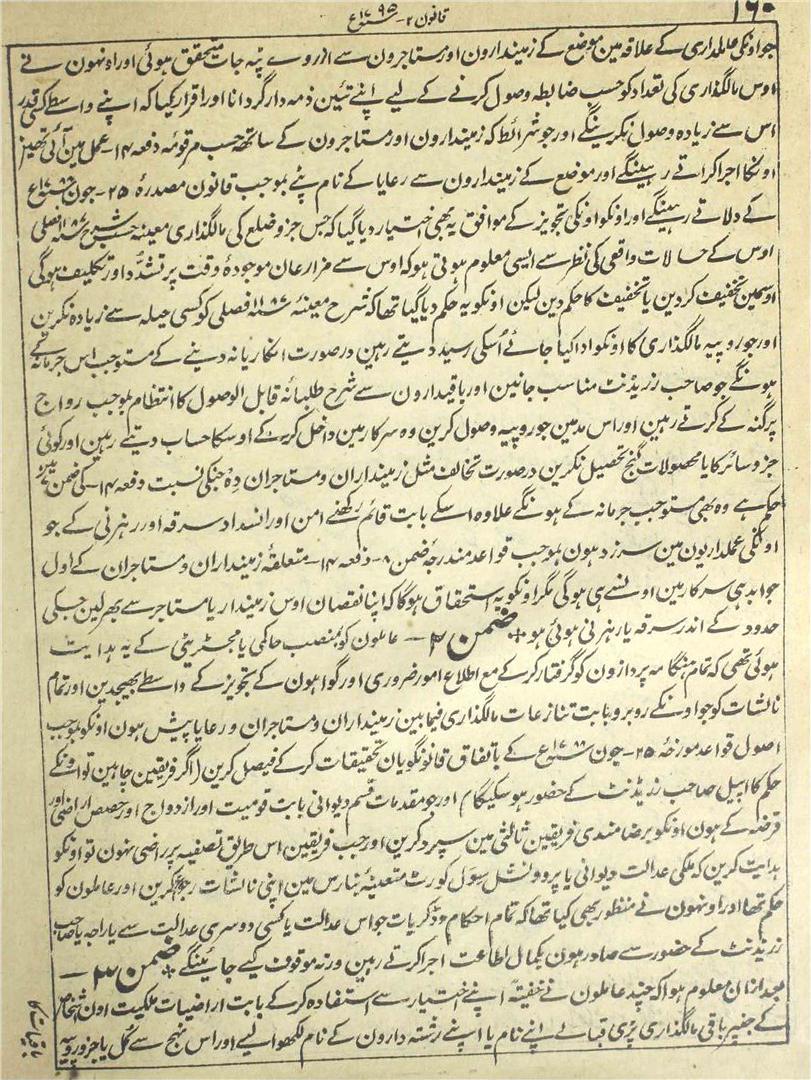 ۱۶۰
قانون ۲ - ۱۷۹۵ع
جو اونکی عاملداری کے علاقہ مین موضع کے زمیندارون اور مستاجرون سے ازروے پٹہ جات متحقق ہوئی اور اونہون نے
اوس مالگذاری کی تعداد کو حسب ضابطہ وصول کرنے کے لیے اپنے تئین ذمہ دار گردانا اور اقرار کیا کہ اپنے واسطے کسی قدر
اس سے زیادہ وصول نکرینگے اور جو شرائط کہ زمیندارون اور مستاجرون کے ساتھ حسب مرقومہ دفعہ ۱۴ - عمل مین آئی تھین
اونکا اجرا کراتے رہینگے اور موضع کے زمیندارون سے رعایا کے نام پٹے بموجب قانون مصدرۂ ۲۵ - جون ۱۷۸۸ع
کے دلاتے رہینگے اور اونکو اونکی تجویز کے موافق یہ بھی اختیار دیا گیا کہ جس جزو ضلع کی مالگذاری معینہ حسب شرح فصلی
اوس کے حالات واقعی کی نظر سے ایسی معلوم ہوتی ہو کہ اوس سے مزارعان موجودۂ وقت پر تشدد اور تکلیف ہوگی
اوسمین تخفیف کردین یا تخفیف کا حکم دین لیکن اونکو یہ حکم دیا گیا تھا کہ شرح معینہ ۱۱۸۷ فصلی کو کسی حیلہ سے زیادہ نکرین
اور جو روپیہ مالگذاری کا اونکو ادا کیا جائے اُسکی رسید دیتے رہین درصورت انکار یا نہ دینے کے مستوجب اس جرمانہ کے
ہونگے جو صاحب رزیڈنٹ مناسب جانین اور باقیدارون سے شرح طلبانہ قابل الوصول کا انتظام بموجب رواج
پرگنہ کے کرتے رہین اور اس مدمین جو روپیہ وصول کرین وہ سرکار مین داخل کرکے اوسکا حساب دیتے رہین اور کوئی
جزو سائر کا یا محصولات گنج تحصیل نکرین درصورت تخالف مثل زمینداران و مستاجران دِہ جنکی نسبت دفعہ ۱۴ - کی ضمن
چکا ہے وہ بھی مستوجب جرمانہ کے ہونگے علاوہ اسکے بابت قائم رکھنے امن اور انسداد سرقہ اور رہزنی کے جو
اونکی عملداریون مین سرزد ہون بموجب قواعد مندرجۂ ضمن ۸ - دفعہ ۱۴ - متعلقۂ زمینداران و مستاجران کے اول
جوابدہی سرکار مین اونسے ہی ہوگی مگر اونکو یہ استحقاق ہوگا کہ اپنا نقصان اوس زمیندار یا مستاجر سے بھر لین جسکی
حدود کے اندر سرقہ یا رہزنی ہوئی ہو ٭ ضمن ۲ - عاملون کو بمنصب حاکمی یا مجسٹریٹی کے یہ ہدایت
ہوئی تھی کہ تمام ہنگامہ پردازون کو گرفتار کرکے مع اطلاع امور ضروری اور گواہون کے تجویز کے واسطے بھیجدین اور تمام
نالشات کو جو اونکے روبرو بابت تنازعات مالگذاری فیمابین زمینداران و مستاجران و رعایا پیش ہون اونکو بموجب
اصول قواعد مورخۂ ۲۵ - جون ۱۷۸۸ع کے باتفاق قانونگویان تحقیقات کرکے فیصل کرین (اگر فریقین چاہین تو اونکے
حکم کا اپیل صاحب رزیڈنٹ کے حضور ہوسکیگا) اور جو مقدمات قسم دیوانی بابت قومیت اور ازدواج اور حصص اراضی اور
قرضہ کے ہون اونکو برضامندی فریقین ثالثی مین سپرد کرین اور جب فریقین اس طریق تصفیہ پر راضی نہون تو اونکو
ہدایت کرین کہ ملکی عدالت دیوانی یا پروونشل سول کورٹ متعینۂ بنارس مین اپنی نالشات رجوع کرین اور عاملون کو
حکم تھا اور اونہون نے منظور بھی کیا تھا کہ تمام احکام و ڈکریات جو اس عدالت یا کسی دوسری عدالت سے یا راجہ یا صاحب
رزیڈنٹ کے حضور سے صادر ہون بکمال اطاعت اجرا کرتے رہین ورنہ موقوف کیے جائینگے ٭ ضمن ۳ -
بعد ازان معلوم ہوا کہ چند عاملون نے خفیۃً اپنے اختیار سے استفادہ کرکے بابت اراضیات ملکیت اون اشخاص
کے جنپر باقی مالگذاری پڑی قبالے اپنے نام یا اپنے رشتہ دارون کے نام لکھوا لیے اور اس نہج سے کُل یا جزو روپیہ